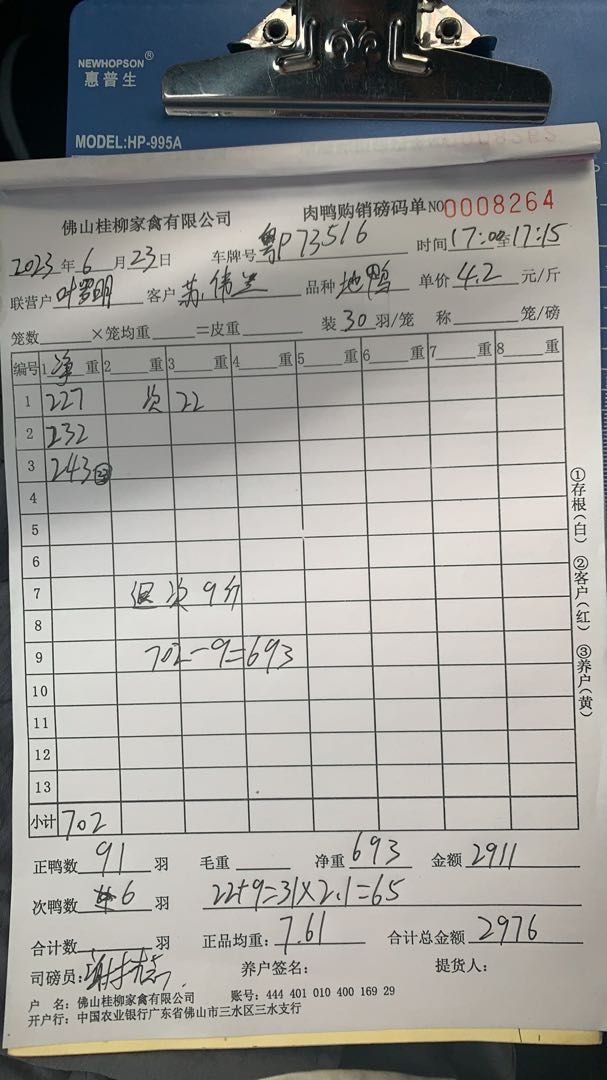 NEWHOPSON®
惠普生
MODEL:HP-995A
佛山桂柳家禽有限公司 肉鸭购销磅码单 NO 0008264
2023年6月23日 车牌号 粤P73516 时间 17:00至17:15
联营户 叶罗明 客户 苏伟兰 品种 地鸭 单价 4.2 元/斤
笼数 ×笼均重 =皮重 装 30 羽/笼 称 笼/磅
编号 1 净 重 2 重 3 重 4 重 5 重 6 重 7 重 8 重
1 227 次 22
2 232
3 243
4
5
6
7 退次 9斤
8
9 702-9=693
10
11
12
13
小计 702
①存根(白) ②客户(红) ③养户(黄)
正鸭数 91 羽 毛重 净重 693 金额 2911
次鸭数 6 羽 22+9=31×2.1=65
合计数 羽 正品均重: 7.61 合计总金额 2976
司磅员: 谢 养户签名: 提货人:
户 名: 佛山桂柳家禽有限公司 账号: 444 401 010 400 169 29
开户行: 中国农业银行广东省佛山市三水区三水支行